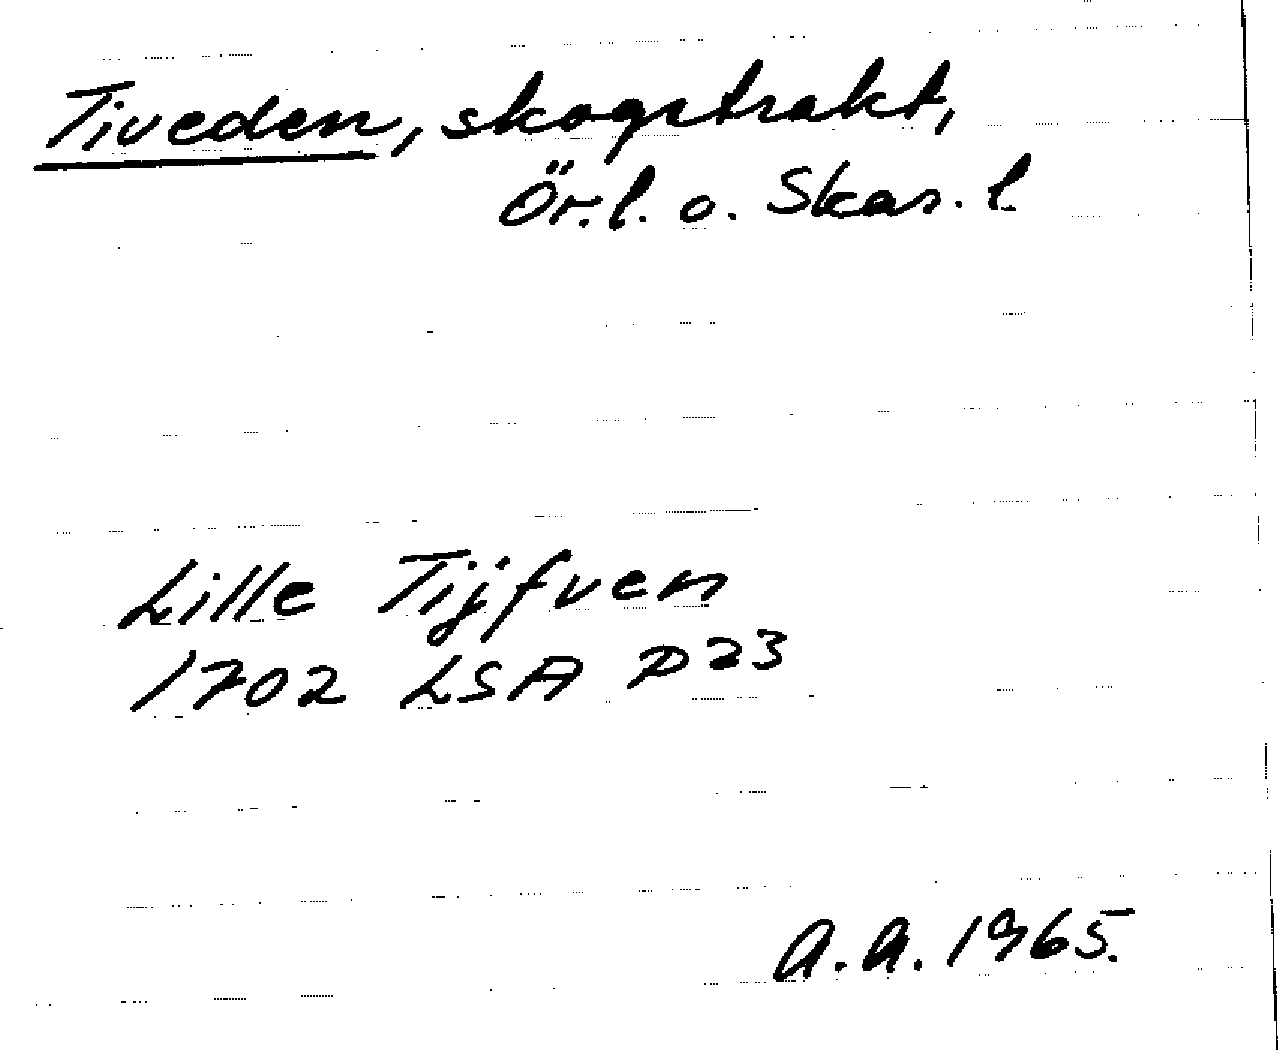 Tiveden, skogstrakt,
Ör. l. o. Skar. l.
Lille Tijfven
1702 LSA P23
A.A. 1965.